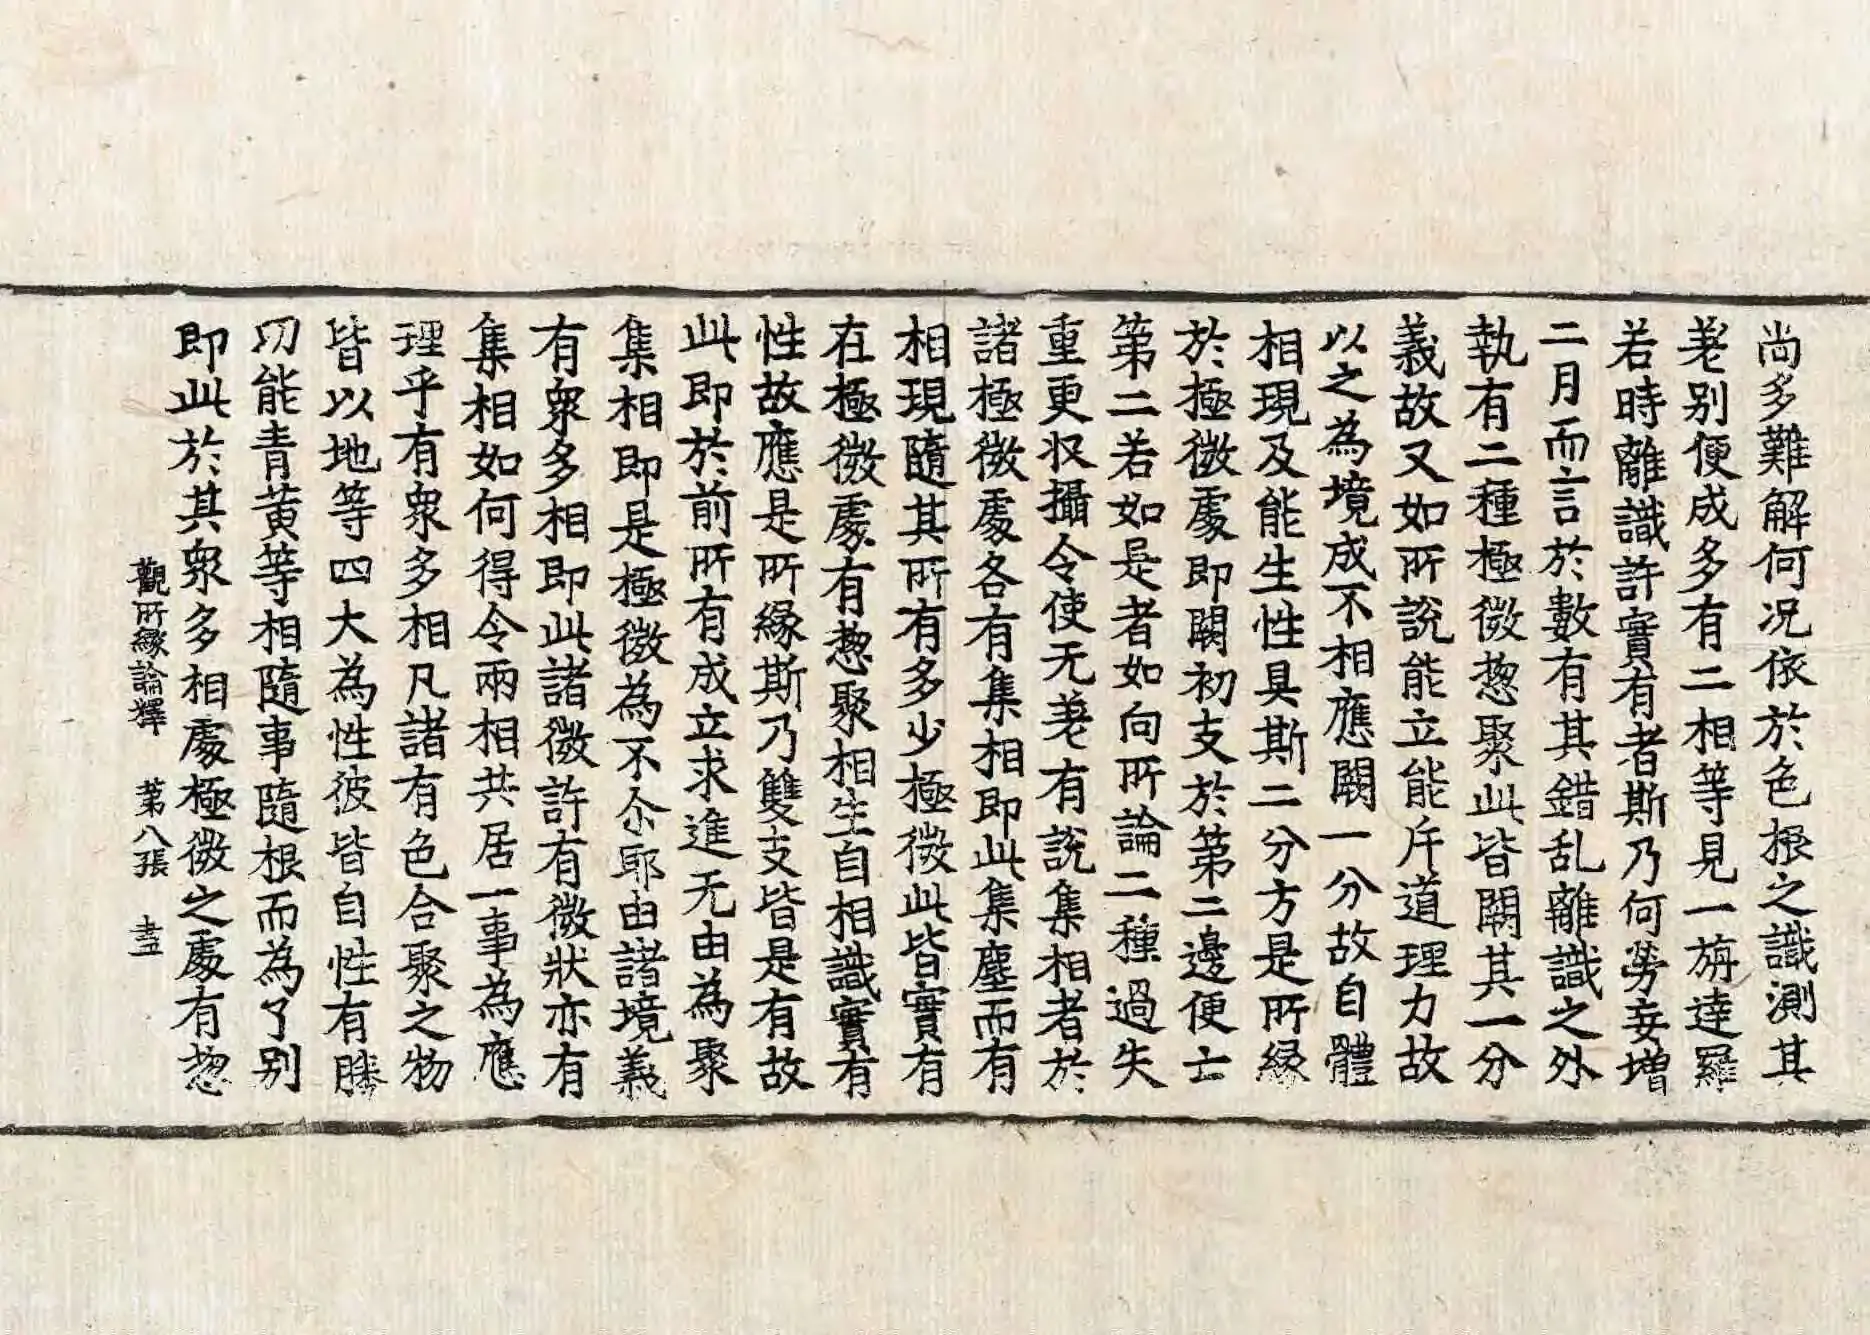 尚多難解何況依於色根之識測其
差別便成多有二相等見一旃達羅
若時離識許實有者斯乃何勞妄增
二月而言於數有其錯乱離識之外
執有二種極微惣聚此皆闕其一分
義故又如所說能立能斥道理力故
以之為境成不相應闕一分故自體
相現及能生性具斯二分方是所緣
於極微處即闕初支於第二邊便亡
第二若如是者如向所論二種過失
重更收攝令使无差有說集相者於
諸極微處各有集相即此集塵而有
相現隨其所有多少極微此皆實有
在極微處有惣聚相生自相識實有
性故應是所緣斯乃雙支皆是有故
此即於前所有成立求進无由為聚
集相即是極微為不尒耶由諸境義
有衆多相即此諸微許有微狀亦有
集相如何得令兩相共居一事為應
理乎有衆多相凡諸有色合聚之物
皆以地等四大為性彼皆自性有勝
功能青黃等相隨事隨根而為了別
即此於其衆多相處極微之處有惣
觀所緣論釋 第八張